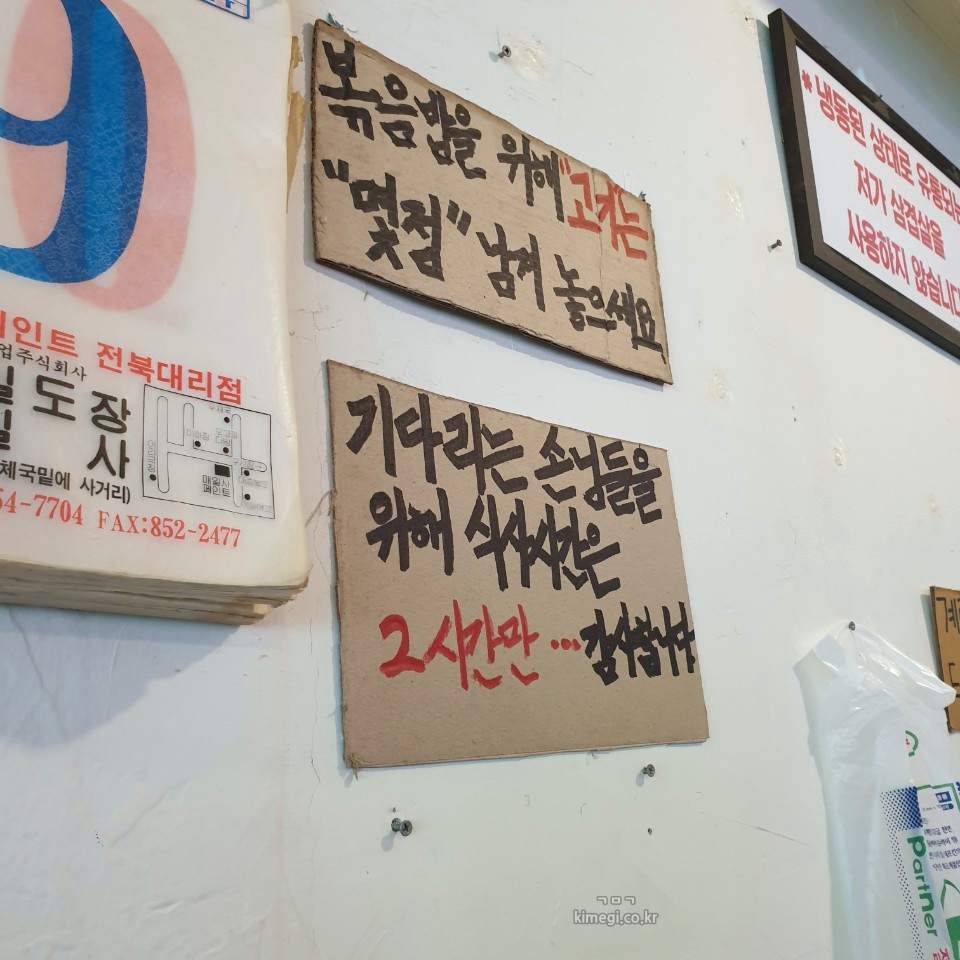 9
페인트 전북대리점
업주식회사
밀도장
밀 사
체국밑에 사거리)
54-7704 FAX:852-2477
매일사
페인트
볶음밥을 위해 "고기"는
"몇점" 남겨 놓으세요
기다리는 손님들을
위해 식사시간은
2시간만 ... 감사합니다
* 냉동된 상태로 유통되는
저가 삼겹살을
사용하지 않습니다
partner
ㄱㅁㄱ
kimegi.co.kr